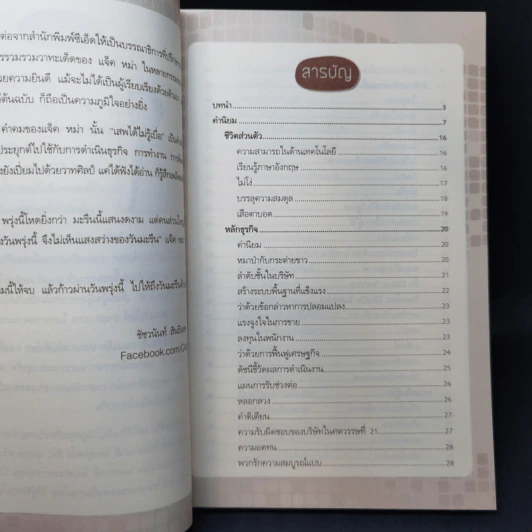 ต่อจากสำนักพิมพ์ซีเอ็ดให้เป็นบรรณาธิการที่ปรึกษา
รรวมรวมวาทะเด็ดของ แจ็ค หม่า ในหลาย
ยความยินดี แม้จะไม่ได้เป็นผู้เรียบเรียงด้วย
ต้นฉบับ ก็ถือเป็นความภูมิใจอย่างยิ่ง
คำคมของแจ็ค หม่า นั้น "เสพได้ไม่รู้เบื่อ"
ประยุกต์ไปใช้กับการดำเนินธุรกิจ การทำงาน
ยังเปี่ยมไปด้วยวาทศิลป์ แต่ได้ฟังได้อ่าน
พรุ่งนี้โหดยิ่งกว่า มะรืนนี้แสนงดงาม แต่คนส่วน
วันพรุ่งนี้ จึงไม่เห็นแสงสว่างของวันมะรืน" แจ็ค
มนี้ให้จบ แล้วก้าวผ่านวันพรุ่งนี้ ไปให้ถึงวันมะรืน
ชัชวนันท์
Facebook.com
สารบัญ
บทนำ 3
คำนิยม 7
ชีวิตส่วนตัว 16
ความสามารถในด้านเทคโนโลยี 16
เรียนรู้ภาษาอังกฤษ 16
ไม่โง่ 17
บรรลุความสมดุล 18
เสือดาบอด 19
หลักธุรกิจ 20
ค่านิยม 20
หมาป่ากับกระต่ายขาว 20
ลำดับชั้นในบริษัท 21
สร้างระบบพื้นฐานที่แข็งแรง 22
ว่าด้วยข้อกล่าวหาการปลอมแปลง 23
แรงจูงใจในการขาย 23
ลงทุนในพนักงาน 23
ว่าด้วยการฟื้นฟูเศรษฐกิจ 24
ดัชนีชี้วัดผลการดำเนินงาน 25
แผนการรับช่วงต่อ 26
หลอกลวง 26
คำติเตียน 27
ความรับผิดชอบของบริษัทในศตวรรษที่ 21 27
ความอดทน 28
พวกรักความสมบูรณ์แบบ 28